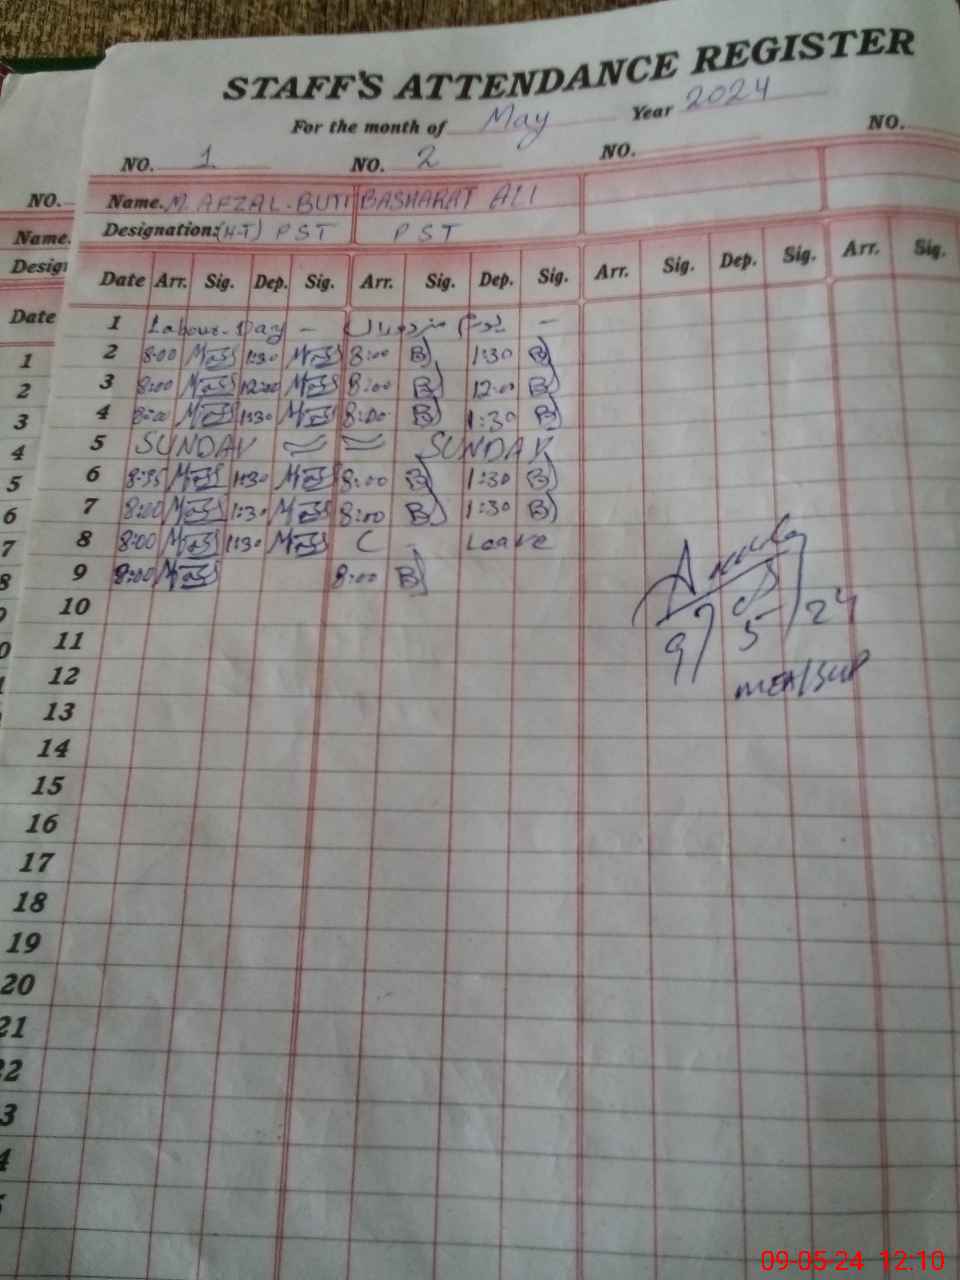 STAFF'S ATTENDANCE REGISTER
For the month of May Year 2024
NO. 1 NO. 2 NO. NO.
Name. M. AFZAL-BUTT BASHARAT ALI
Designation: (H-T) PST PST
Date Arr. Sig. Dep. Sig. Arr. Sig. Dep. Sig. Arr. Sig. Dep. Sig. Arr. Sig.
1 Labour-Day - یوم مزدوراں -
2 8:00 1:30 8:00 B 1:30 B
3 8:00 12:00 8:00 B 12:00 B
4 8:00 1:30 8:00 B 1:30 B
5 SUNDAY SUNDAY
6 8:35 1:30 8:00 B 1:30 B
7 8:00 1:30 8:00 B 1:30 B
8 8:00 1:30 C - Leave
9 8:00 8:00 B
10
11
12
13
14
15
16
17
18
19
20
9/5/24
MEA/SUP
NO.
Name.
Desig
Date
1
2
3
4
5
6
7
8
21
22
3
4
09-05-24 12:10